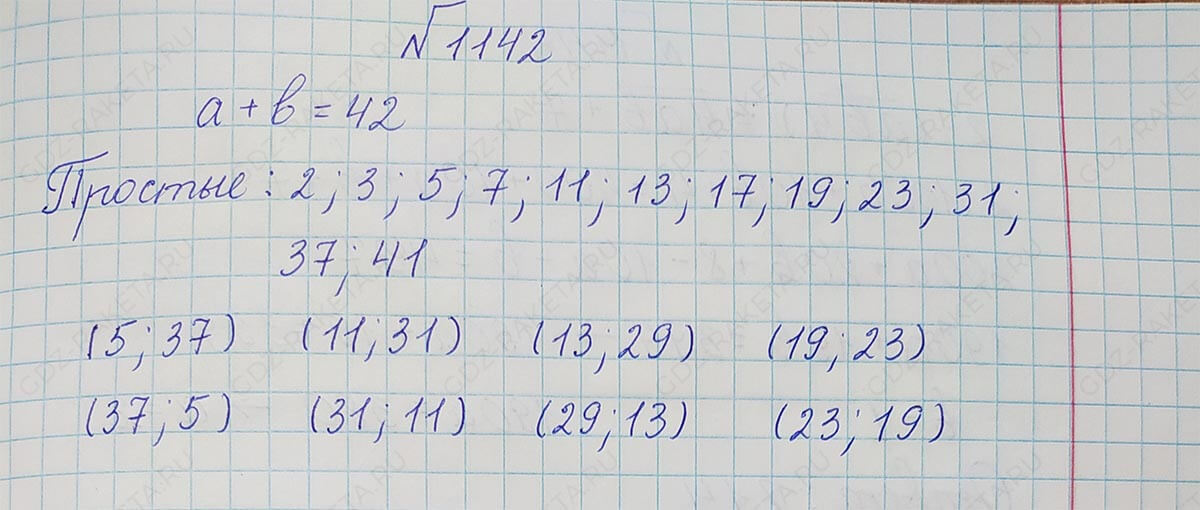 №1142
a + b = 42
Простые: 2; 3; 5; 7; 11; 13; 17; 19; 23; 31;
37; 41
(5; 37) (11; 31) (13; 29) (19; 23)
(37; 5) (31; 11) (29; 13) (23; 19)
GDZ-RAKETA.RU